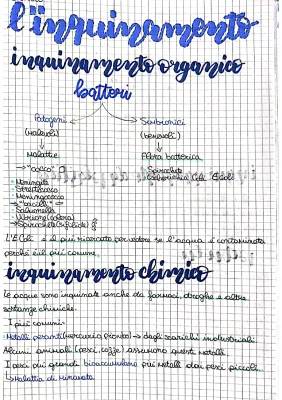 l'inquinamento
inquinamento organico
batteri
Patogeni Simbionici
(malevoli) (benevoli)
Malattie Flora batterica
"cocco" Spirochete
Meningite Escherichia Coli "E.Coli"
Streptococco
Meningococco
"bacilli"
Salmonella
Vibrione (colera)
Spirochete (sifilide)
L'E.Coli è il più ricercato per vedere se l'acqua è contaminata
perchè è il più comune.
inquinamento chimico
Le acque sono inquinate anche da farmaci, droghe e altre
sostanze chimiche.
I più comuni:
Metalli pesanti (mercurio, piombo) → dagli scarichi industriali
Alcuni animali (pesci, cozze) assumono questi metalli.
I pesci più grandi bioaccumulano più metalli dai pesci piccoli.
↳ Malattia di Minamata